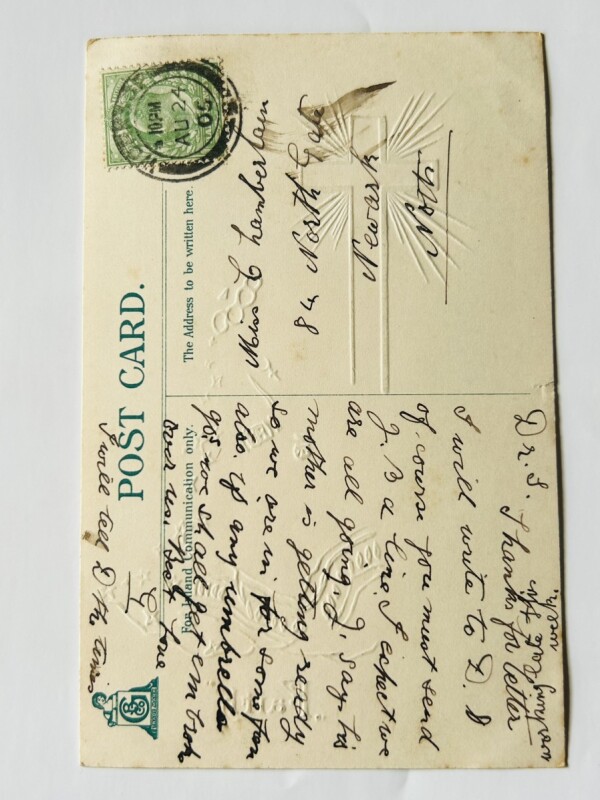 POST CARD.
For Inland Communication only.
The Address to be written here.
10 PM
AU 24
05
Miss L Chamberlain
84 North Gate
Newark
Dr. S. Thanks for letter
I will write to D. &
of course you must send
J. B a line. I expect we
are all going. J. says his
mother is getting ready
so we are in for some fun
also. If any umbrella
goes we shall get em broke
over us. Best love
I will tell D the